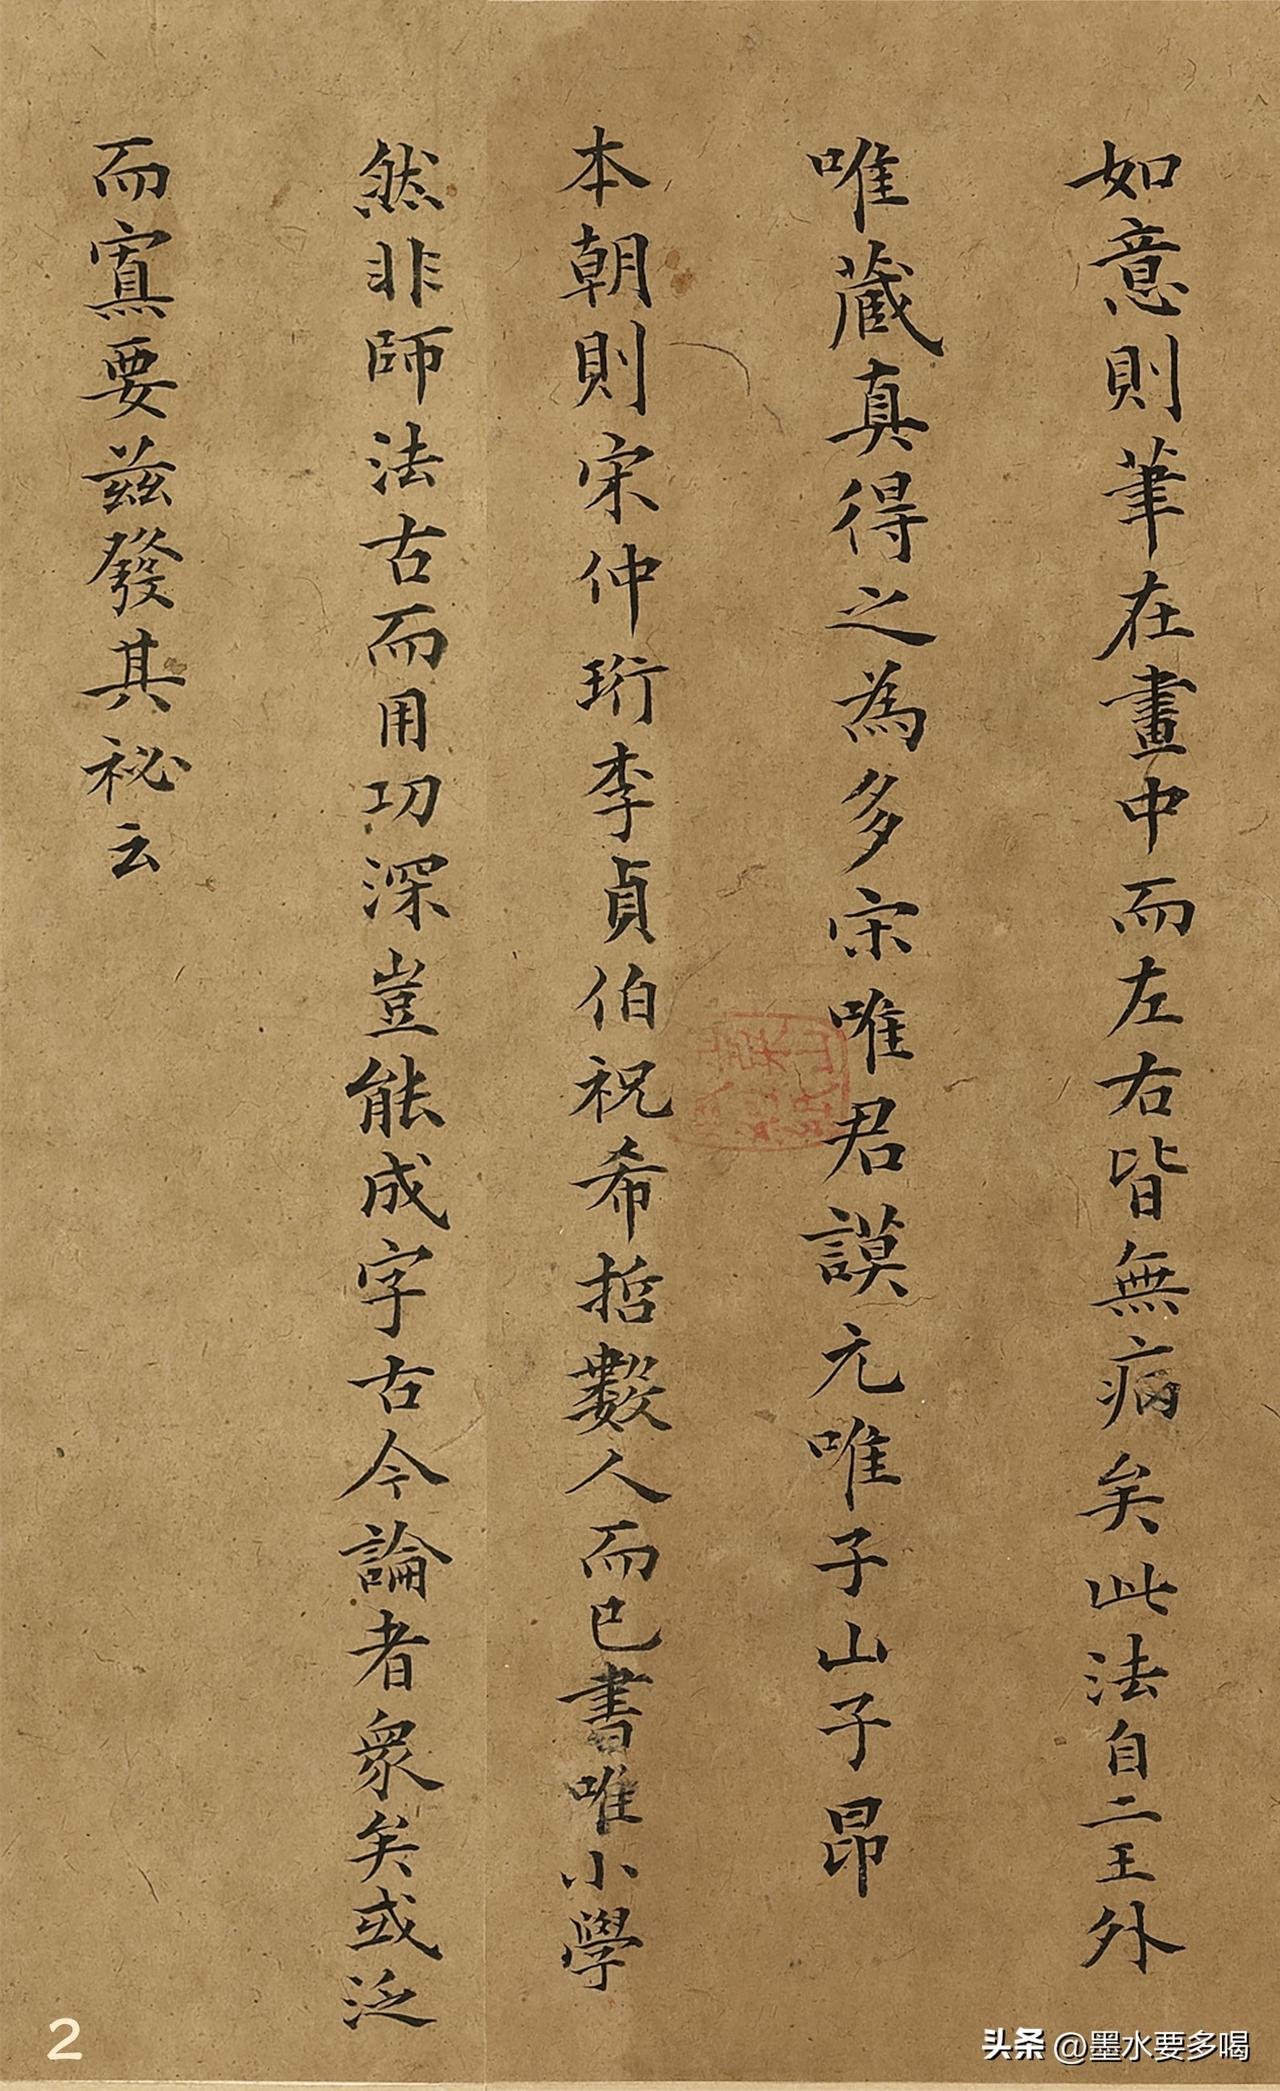 如意則筆在畫中而左右皆無病矣此法自二王外
唯藏真得之為多宋唯君謨元唯子山子昂
本朝則宋仲珩李貞伯祝希哲數人而已書唯小學
然非師法古而用功深豈能成字古今論者衆矣或泛
而寡要茲發其祕云
2
头条 @墨水要多喝